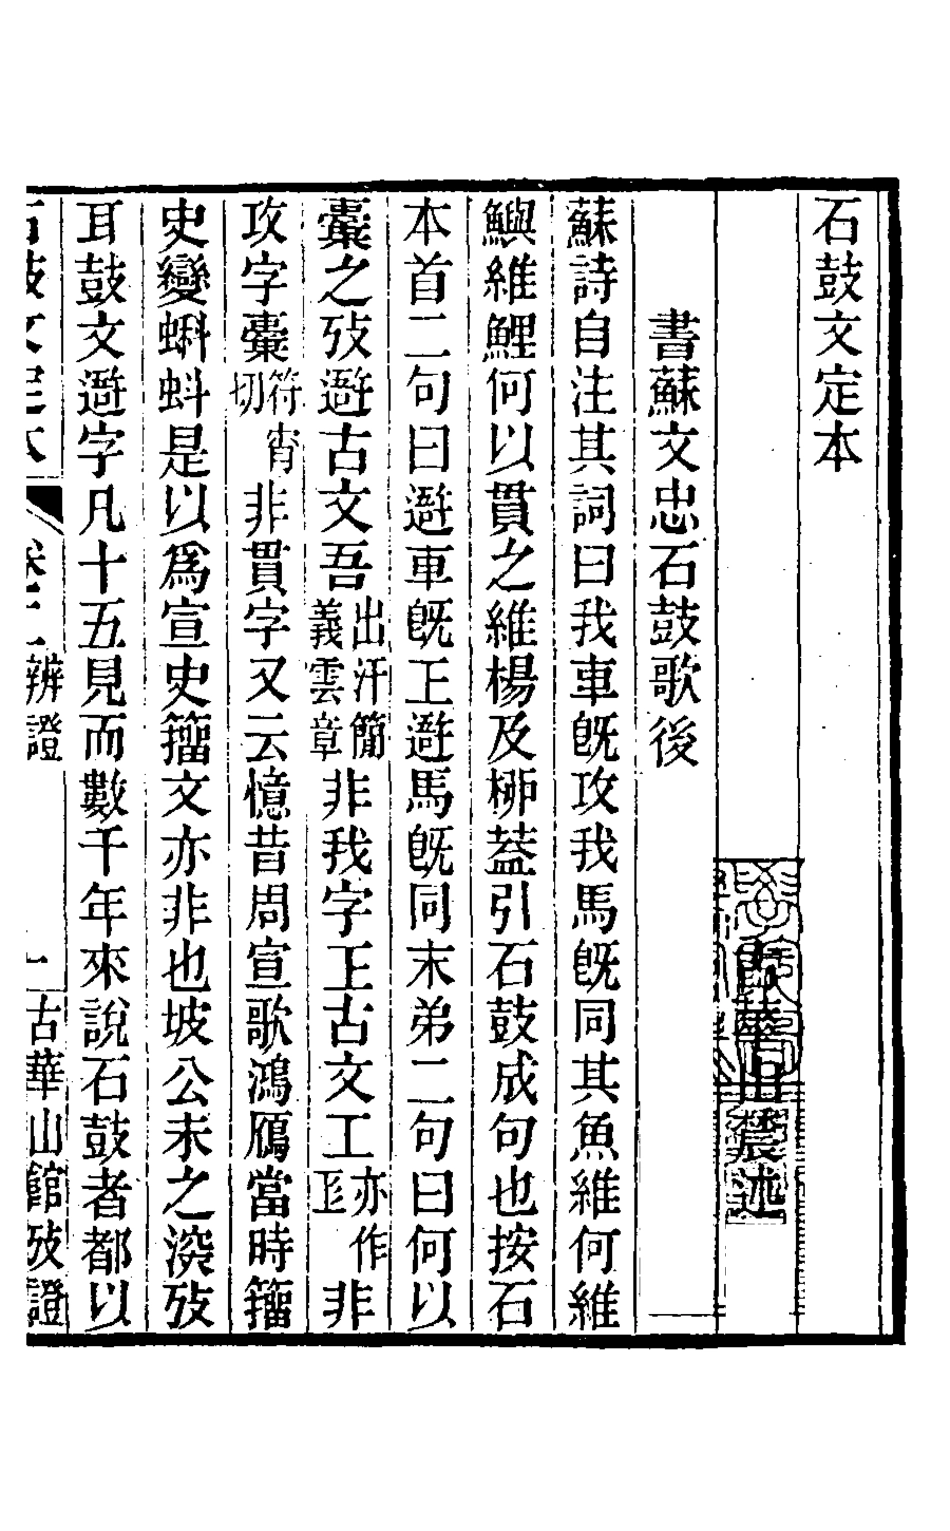 石鼓文定本
古華山農述
書蘇文忠石鼓歌後
蘇詩自注其詞曰我車旣攻我馬旣同其魚維何維
鱮維鯉何以貫之維楊及桺葢引石鼓成句也按石
本首二句曰遊車旣工遊馬旣同末弟二句曰何以
橐之攷遊古文吾出汗簡義雲章非我字𢀜古文工亦作𢒄非
攻字橐符宵切非貫字又云憶昔周宣歌鴻鴈當時籒
史變蝌蚪是以爲宣史籒文亦非也坡公未之深攷
耳鼓文遊字凡十五見而數千年來說石鼓者都以
石鼓文定本 卷十二辨證 一 古華山館攷證